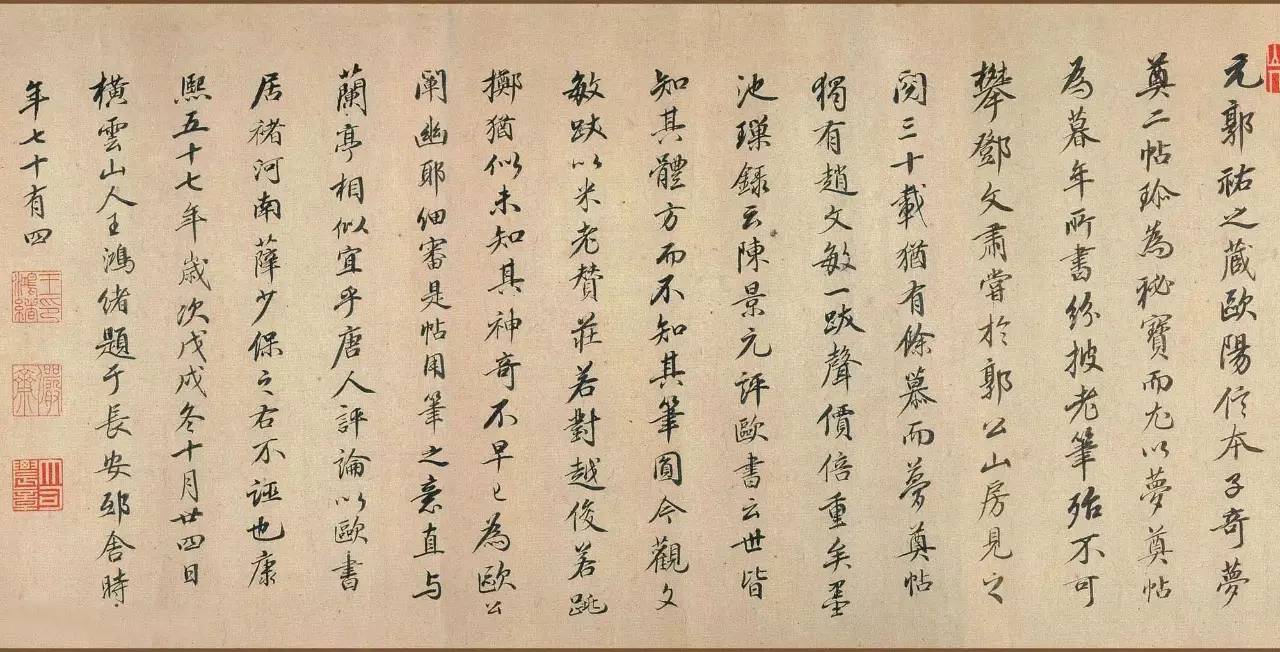 元郭祐之蔵歐陽信本子奇夢
奠二帖珎為祕寶而尤以夢奠帖
為暮年所書紛披老筆殆不可
攀鄧文肅嘗於郭公山房見之
閱三十載猶有餘慕而夢奠帖
獨有趙文敏一跋聲價倍重矣墨
池璅録云陳景元評歐書云世皆
知其體方而不知其筆圓今觀文
敏跋以米老贊莊若對越俊若跳
擲猶似未知其神奇不早已為歐公
闡幽耶細審是帖用筆之意直与
蘭亭相似宜乎唐人評論以歐書
居褚河南薛少保之右不誣也康
熙五十七年歲次戊戌冬十月廿四日
橫雲山人王鴻緒題于長安邸舍時
年七十有四
王印鴻緒
儼齋